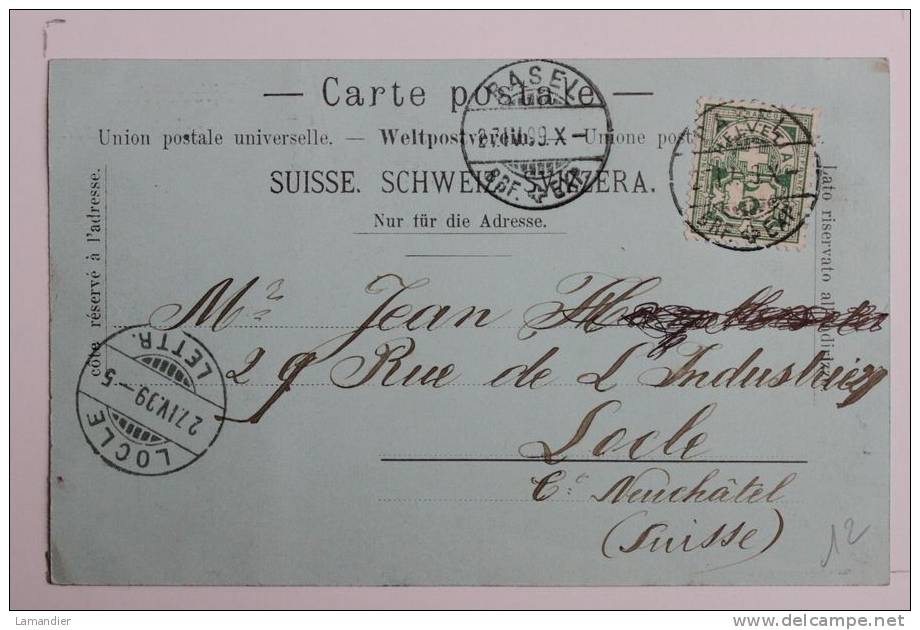 — Carte postale —
Union postale universelle. — Weltpostverein. — Unione
SUISSE. SCHWEIZ. SVIZZERA.
Nur für die Adresse.
côté réservé à l'adresse.
Lato riservato
BASEL
27.IV.99.X–
BRF. EXP.
HELVETIA
5
BRF. EXP.
LETTR.
27.IV.99–5
LOCLE
Mr Jean
29 Rue de L'Industrie
Locle
Ct Neuchâtel
(Suisse)
12
Lamandier
www.delcampe.net